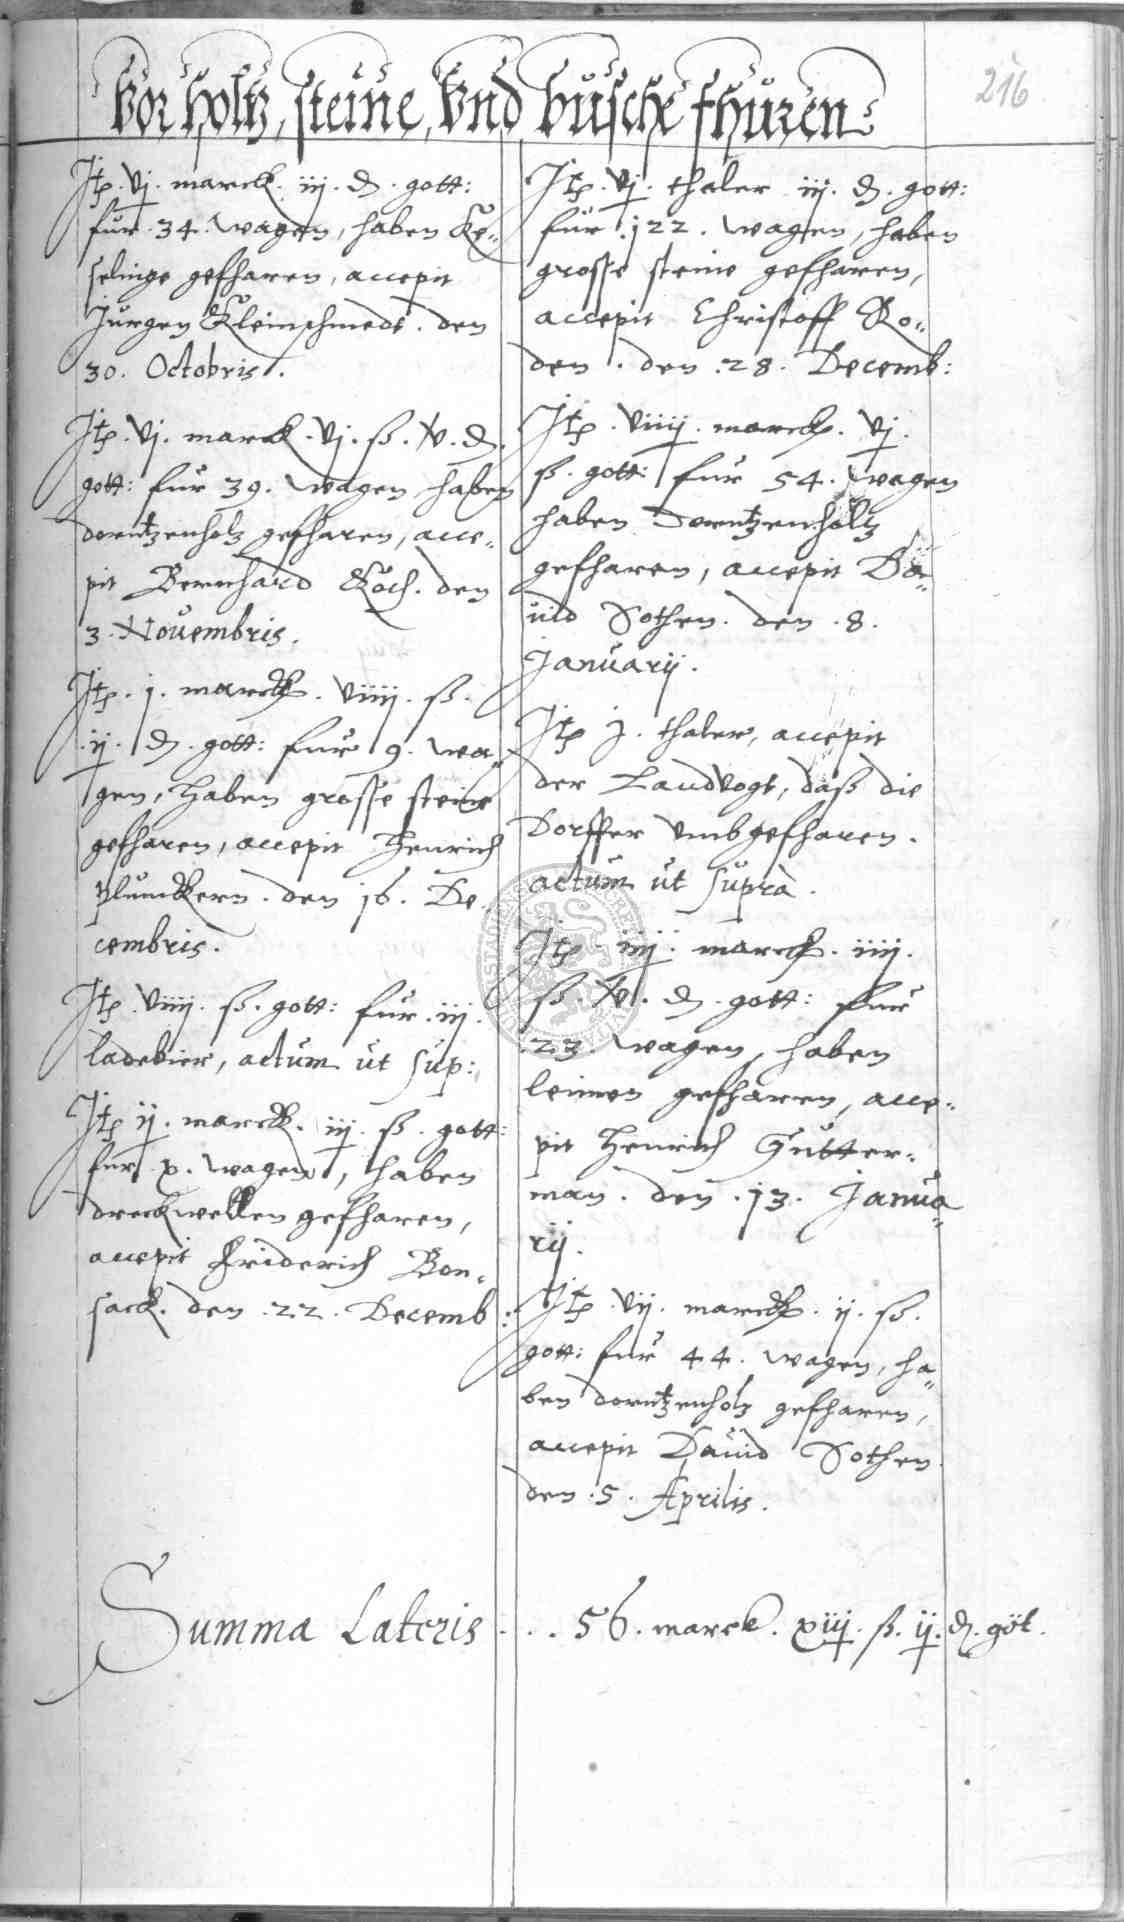 216
Vor holtz, steine, Vnd büsche fhüren
Itp. vj. marck. iij. d. gott:
für 34. wagen, haben Ke-
selinge gefharen, accepit
Jurgen Kleinschmedt. den
30. Octobris.
Itp. vj. marck. vj. ß. v. d.
gott: für 39. wagen haben
dorntzenholtz gefharen, acce-
pit Bernhard Koch. den
3. Nouembris.
Itp. j. marck. viiij. ß.
ij. d. gott: für 9. wa-
gen, haben grosse steine
gefharen, accepit Henrich
Plunckern. den 16. De-
cembris.
Itp. viiij. ß. gott: für iij.
ladebier, actum ut sup:
Itp ij. marck. iij. ß. gott:
für x. wagen, haben
dreckwelken gefharen,
accepit Friderich Bon-
sack. den 22. Decemb:
Itp. vj. thaler iij. d. gott:
für 122. wagen, haben
grosse steine gefharen,
accepit Christoff Ro-
den. den 28. Decemb:
Itp. viiij. marck. vj.
ß. gott: für 54. wagen
haben dorntzenholtz
gefharen, accepit Da-
uid Sothen. den 8.
Januarij.
Itp j. thaler, accepit
der Landvogt, daß die
Dorffer vmbgefharen.
actum ut supra.
Itp. iij. marck. iiij.
ß. v. d. gott: für
23. wagen, haben
leimen gefharen, acce-
pit Henrich Gütter-
man. den 13. Janua-
rij.
Itp. vij. marck. ij. ß.
gott: für 44. wagen, ha-
ben dorntzenholtz gefharen,
accepit Dauid Sothen
den 5. Aprilis.
Summa Lateris . . . 56. marck. xiij. ß. ij. d. got.